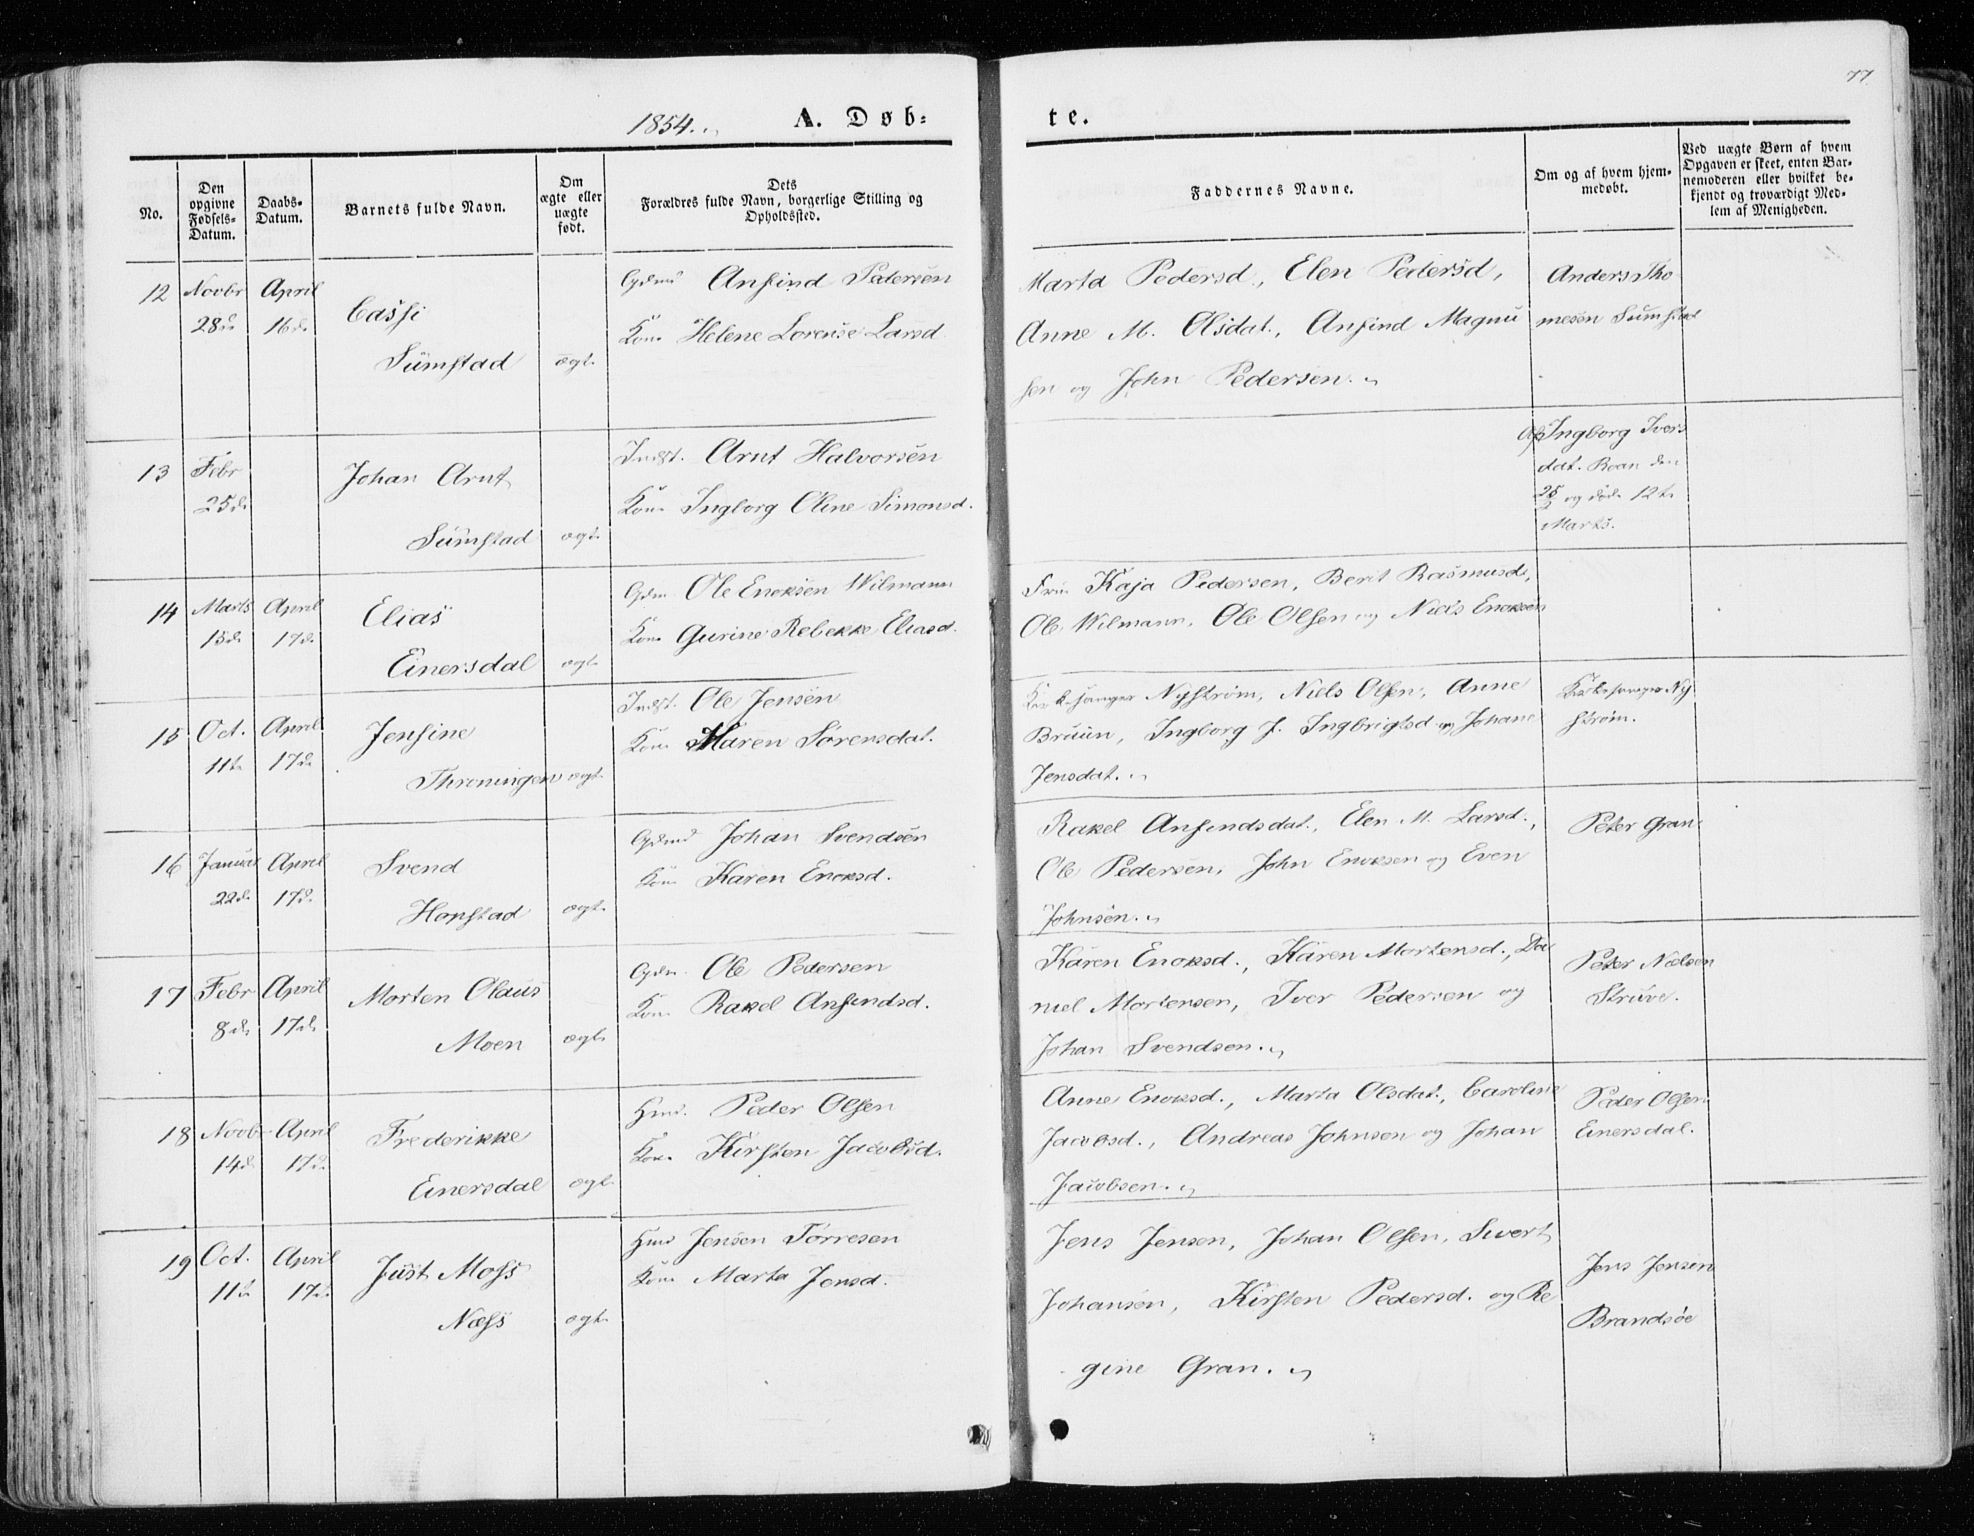 77
1854.
A. Døb-
te.
No.
Den opgivne Fødsels-Datum.
Daabs-Datum.
Barnets fulde Navn.
Om ægte eller uægte født.
Dets Forældres fulde Navn, borgerlige Stilling og Opholdssted.
Faddernes Navne.
Om og af hvem hjemmedøbt.
Ved uægte Børn af hvem Opgaven er skeet, enten Barnemoderen eller hvilket bekjendt og troværdigt Medlem af Menigheden.
12 Novbr April
28d 16d
Cassi
Sümstad
ægt.
Gdmd Anfind Pedersen
Kone Helene Lorense Larsd.
Marta Pedersd., Elen Pedersd,
Anne M. Olsdat., Anfind Magnu
sen og John Pedersen.
Anders Tho
mesen Sumstad
13 Febr
25d
Johan Arnt
Sümstad
ægt.
Indst. Arnt Halvorsen
Kone Ingborg Oline Simonsd.
Af Ingborg Ivers
dat. Roan den
25/2 og døde 12te
Marts.
14 Marts April
15d 17d
Elias
Einersdal
ægt.
Gdm. Ole Enoksen Wilmann
Kone Gurine Rebekke Eliasd.
Fru Kaja Pedersen, Berit Rasmusd,
Ole Wilmann, Ole Olsen og Niels Enoksen
15 Oct. April
11te 17d
Jensine
Throningen
ægt.
Indst. Ole Jensen
Kone Maren Sørensdat.
Kirkesanger Nystrøm, Niels Olsen, Anne
Bruun, Ingborg J. Ingbrigtsd og Johane
Jensdat.
Kirkesanger Ny
strøm.
16 Januar April
22d 17d
Svend
Hopstad
ægt.
Gdmd Johan Svendsen
Kone Karen Enoksd.
Rakel Anfindsdat., Elen M. Larsd.,
Ole Pedersen, John Enoksen og Even
Johnsen.
Peter Gran
17 Febr April
8d 17d
Morten Olaus
Moen
ægt.
Gdm. Ole Pedersen
Kone Rakel Anfindsd.
Karen Enoksd., Karen Mortensd., Da
niel Mortensen, Iver Pedersen og
Johan Svendsen.
Peter Nielsen
Strüve.
18 Novbr April
14d 17d
Frederikke
Einersdal
ægt.
Hmd. Peder Olsen
Kone Kirsten Jacobsd.
Anne Enoksd., Marta Olsdat., Caroline
Jacobsd., Andreas Johnsen og Johan
Jacobsen.
Peder Olsen
Einersdal.
19 Oct. April
11te 17d
Just Moss
Næss
ægt.
Hmd Jensen Torresen
Kone Marta Jensd.
Jens Jensen, Johan Olsen, Sivert
Johansen, Kirsten Pedersd. og Re
gine Gran.
Jens Jensen
Brandsøe